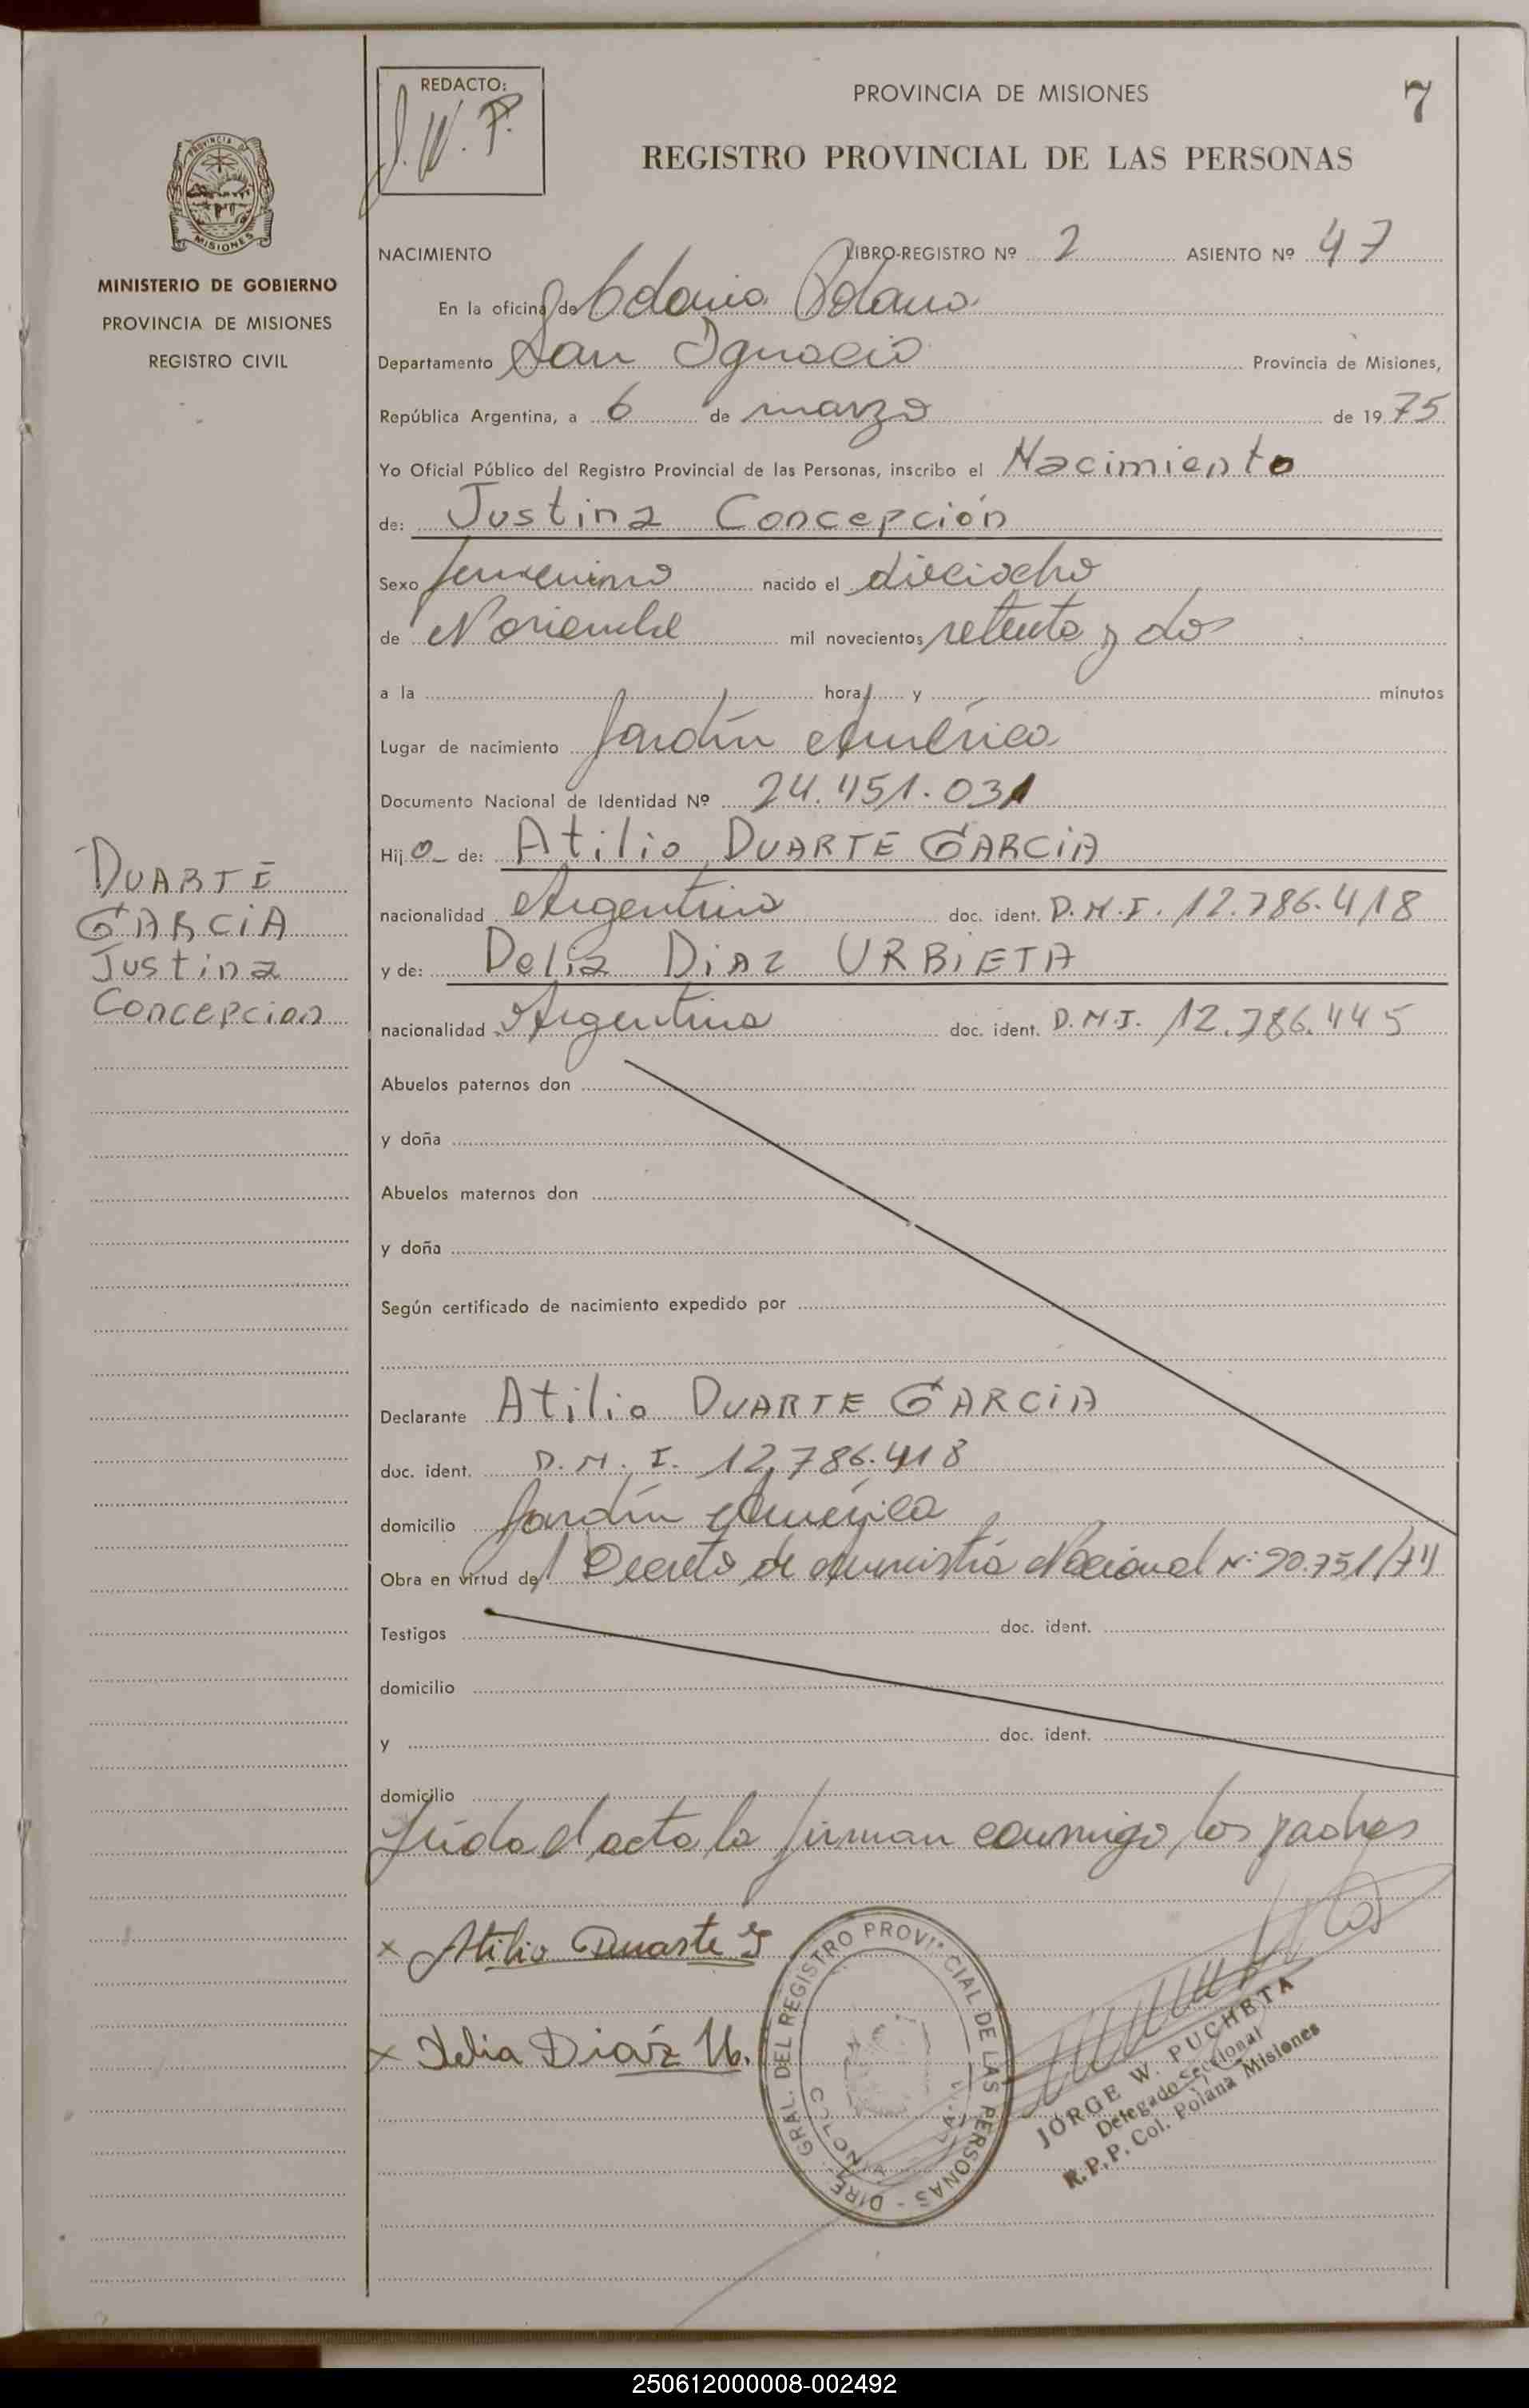 REDACTO:
J. W. P.
PROVINCIA DE MISIONES
7
REGISTRO PROVINCIAL DE LAS PERSONAS
PROVINCIA DE
MISIONES
MINISTERIO DE GOBIERNO
PROVINCIA DE MISIONES
REGISTRO CIVIL
NACIMIENTO LIBRO-REGISTRO Nº 2 ASIENTO Nº 47
En la oficina de Colonia Polana
Departamento San Ignacio Provincia de Misiones,
República Argentina, a 6 de marzo de 1975
Yo Oficial Público del Registro Provincial de las Personas, inscribo el Nacimiento
de: Justina Concepción
Sexo femenino nacido el dieciocho
de Noviembre mil novecientos setenta y dos
a la hora y minutos
Lugar de nacimiento Jardín América
Documento Nacional de Identidad Nº 24.451.031
Hija de: Atilio DUARTE GARCIA
nacionalidad Argentina doc. ident. D.N.I. 12.786.418
y de: Delia DIAZ URBIETA
nacionalidad Argentina doc. ident. D.N.I. 12.786.445
DUARTE
GARCIA
Justina
Concepcion
Abuelos paternos don
y doña
Abuelos maternos don
y doña
Según certificado de nacimiento expedido por
Declarante Atilio DUARTE GARCIA
doc. ident. D.N.I. 12.786.418
domicilio Jardín América
Obra en virtud del Decreto de Amnistía Nacional Nº 20.751/74
Testigos doc. ident.
domicilio
y doc. ident.
domicilio
Leída el acta la firman conmigo los padres
x Atilio Duarte G
x Delia Diáz U.
GRAL. DEL REGISTRO PROVINCIAL DE LAS PERSONAS - DIRE
COLONIA
JORGE W. PUCHETA
Delegado Seccional
R.P.P. Col. Polana Misiones
250612000008-002492